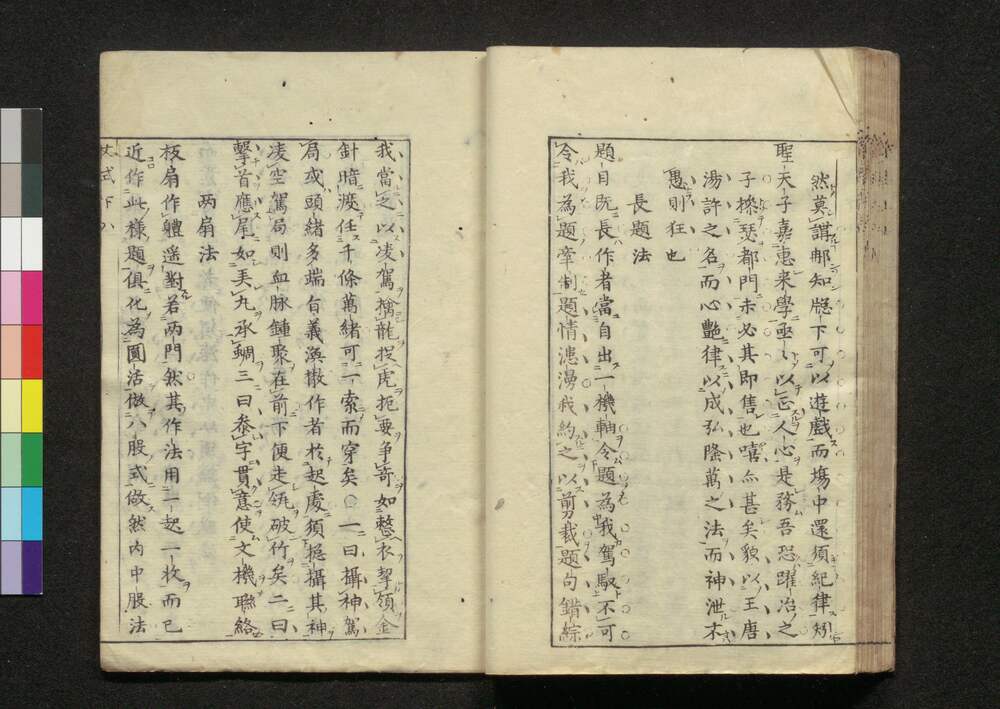 然莫謂邮知隠下可以遊戯而塲中還須紀律矧
聖天子嘉惠来學亟々以正人心是務吾恐躍冶之
子操瑟都門未必其即售也嘻亦甚矣貌以王唐
湯許之名而心艶律以成弘隆萬之法而神泄木
愚則狂也
長題法
題目既長作者當自出一機軸令題為我駕馭不可
令我為題牽制題情漶漫我約之以剪裁題句錯綜
我當之以凌駕檎龍投虎扼要争竒如整衣挈領金
針暗渡任千條萬緒可一索而穿矣○一曰攝神駕
局或頭緒多端旨義渙散作者於起處須摠攝其神
凌空駕局則血脉鍾聚在前下便走瓴破竹矣二曰
擊首應尾如美九承蜩三曰泰字貫意使文機聯絡
兩扇法
板扇作軆遥對若兩門然其作法用一起一收而已
近作此様題俱化為圓活做八股式做然内中股法